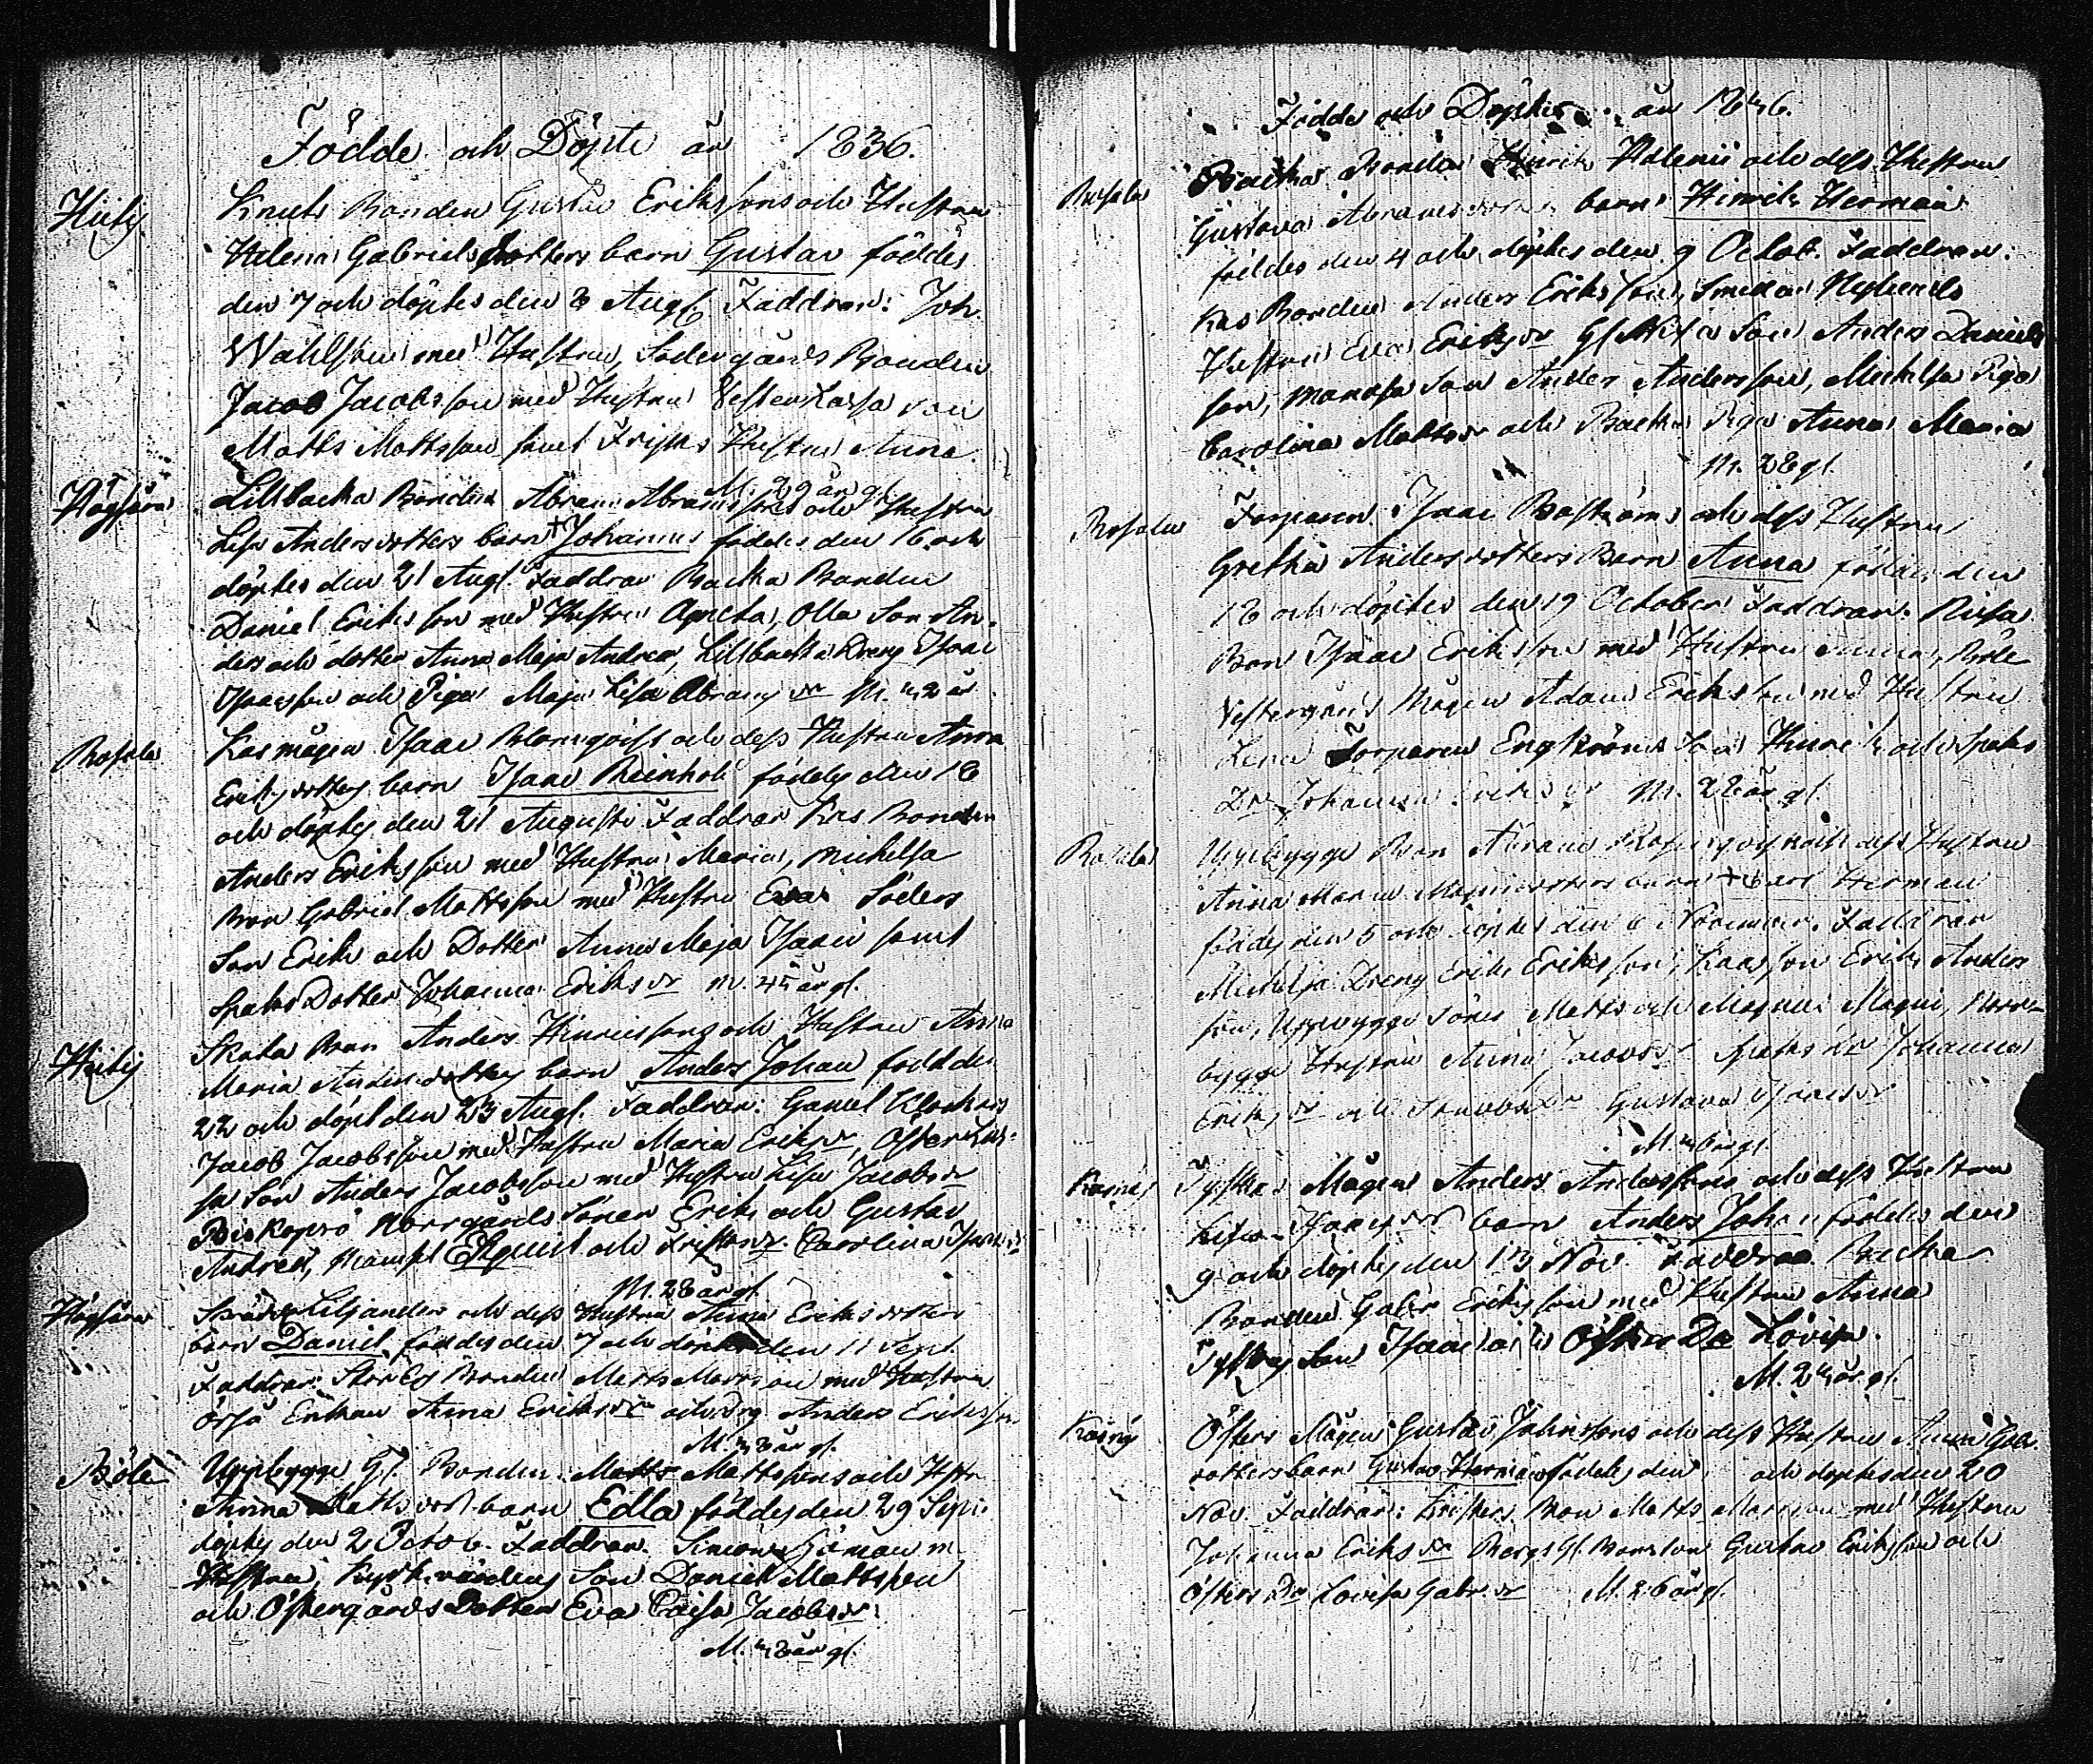 Födde och Döpte år 1836.
Hitis Knuts Bonden Gustav Erikssons och Hustrun
Helena Gabrielsdotters barn Gustav föddes
den 7 och döptes den 8 Aug. Faddrar: Joh.
Wahlsten med Hustru, Södergårds Bonden
Jacob Jacobsson med Hustru Vesterkassa son
Matts Mattsson samt Frisks Hustru Anna.
M. 29 år gl.
Högsåra Lillbacka Bonden Abram Abramssons och Hustru
Lisa Andersdotters barn + Johannes föddes den 16 och
döptes den 21 Aug. Faddrar Backa Bonden
Daniel Eriksson med Hustru Agneta, Olla Son An-
ders och dotter Anna Maja Andrea, Lillbacka Dreng Isaac
Isaacsson och Pigan Maja Lisa Abramsdr M. 42 år
Rosala Kas mågen Isaac Blomqvist och dess Hustru Anna
Eriksdotters barn Isaac Reinhold föddes den 18
och döptes den 21 Augusti Faddrar Kas Bonden
Anders Eriksson med Hustru Maria, Mickelsa
Bon Gabriel Mattsson med Hustru Eva Söders
Son Erik och Dotter Anna Maja Isaaci samt
Spaks Dotter Johanna Eriksdr M. 45 år gl.
Hitis Skata Bon Anders Hinricssons och Hustru Anna
Maria Andersdotters barn Anders Johan född den
22 och döpt den 23 Aug. Faddrar: Gamel Klockars
Jacob Jacobsson med Hustru Maria Eriksdr, Österkas-
sa Son Anders Jacobsson med Hustru Lisa Jacobsdr
Biskopsö Norrgårds Söner Erik och Gustav
Andreæ, Mamsel Elquist och Carolina Isaacsdr
M. 28 år gl.
Högsåra Liljanders och dess Hustru Anna Eriksdotters
barn Daniel föddes den 7 och döptes den 11 Sept.
Faddrar: Bonden Matts Mattsson med Hustru
Örsö Enkan Anna Eriksdr och Drg Anders Eriksson
M. 48 år gl.
Böle Uppbygge Gl. Bonden Matts Mattssons och Hustr
Anna Mattsdotters barn Edla föddes den 29 Sept.
döptes den 2 Octob. Faddrar. Simon Söman m.
Hustru, Kyrkvärdens Son Daniel Mattsson
och Östergårds Dotter Eva Caisa Jacobsdr
M. 48 år gl.
Födde och Döpte år 1836.
Rosala Backa Bonden Hinrik Valenii och dess Hustru
Gustava Abramsdotters barn Hinrik Herman
föddes den 4 och döptes den 9 Octob. Faddrar:
Kas Bonden Anders Eriksson, Smeden Nylunds
Hustru Eva Eriksdr Gl. Nixa Son Anders Daniels
son, Manasa Son Anders Andersson, Mickelsa Piga
Carolina Mattsdr och Backa Piga Anna Maria
M. 28 gl.
Rosala Torparen Isaac Boströms och dess Hustru
Gretha Andersdotters Barn Anna föddes den
18 och döptes den 19 October Faddrar. Nixa
Bon Isaac Eriksson med Hustru Anna, Böle
Vestergårds Mågen Adam Eriksson med Hustru
Lena Torparen Engströms Son Hinrik och Spaks
Dr Johanna Eriksdr M. 28 år gl.
Rosala Uppbygge Bon Abram och dess Hustru
Anna Maria barn + Carl Herman
föddes den 5 och döptes den 6 November. Faddrar
Mickelsa Dreng Erik Eriksson, Kas son Erik Anders
son, Uppbygge Söner Matts och Magnus Magni, Norr-
bygge Hustru Anna Jacobsdr Spaks Dr Johanna
Eriksdr och Gustava Isaacsdr
M. 46 år gl.
Kasnäs Mågen Anders Anderssons och dess Hustru
Lisa Isaacsdrs barn Anders Johan föddes den
9 och döptes den 13 Nov. Faddrar Backa
Bonden Gabr. Eriksson med Hustru Anna
Son Isaac och Östers Dr Lovisa.
M. 24 år gl.
Kasnäs Östers Mågen Gustav Johanssons och dess Hustru Anna
dotters barn Gustav Herman föddes den och döptes den 20
Nov. Faddrar: Bon Matts Mattsson med Hustru
Johanna Eriksdr Bergs Gl. Bonden Gustav Eriksson och
Östers Dr Lovisa Gabr.dr M. 26 år gl.